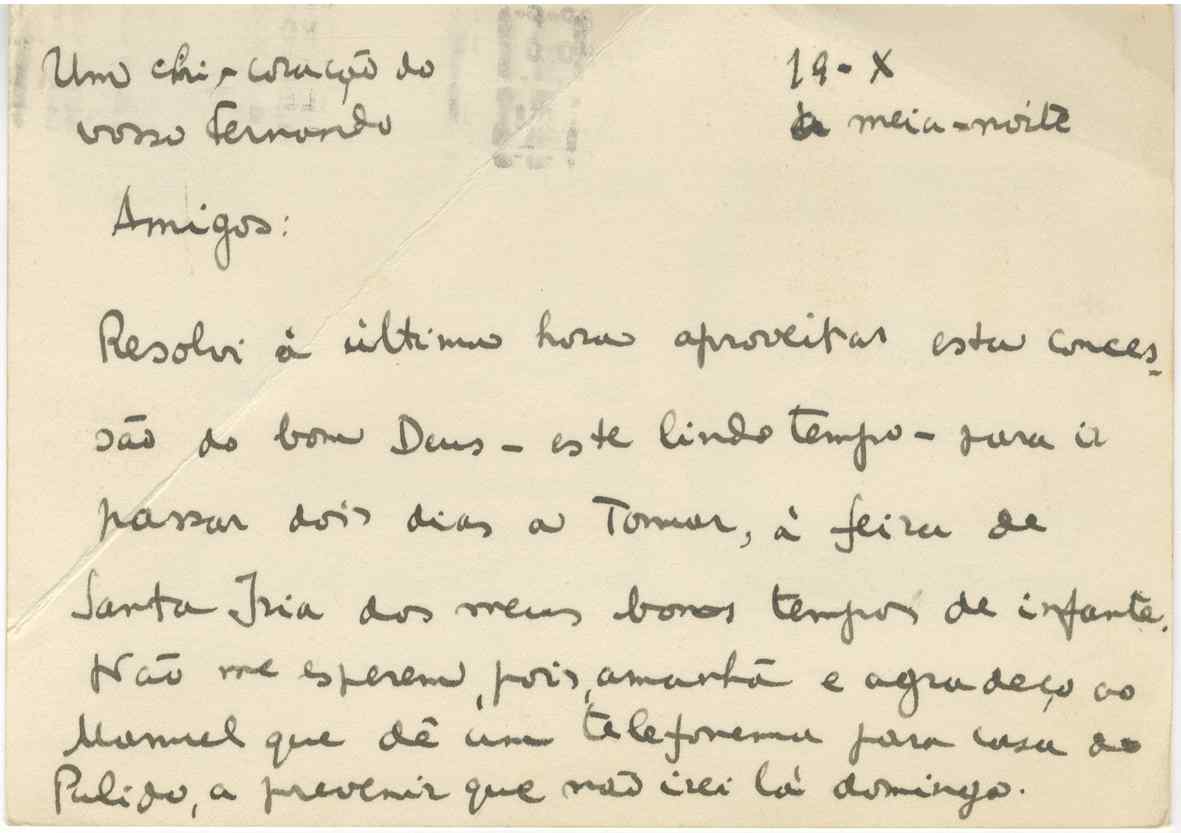 Um chi-coração do
vosso Fernando
19-X
à meia-noite
Amigos:
Resolvi à última hora aproveitar esta conces-
são do bom Deus - este lindo tempo - para ir
passar dois dias a Tomar, à feira de
Santa Iria dos meus bons tempos de infante.
Não me esperem, pois, amanhã e agradeço ao
Manuel que dê um telefonema para casa do
Pulido, a prevenir que não irei lá domingo.